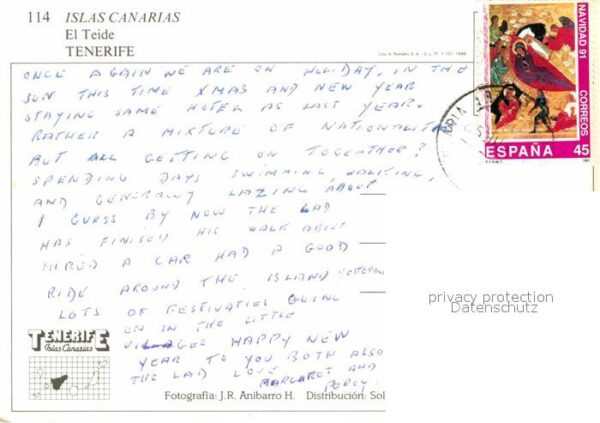 114 ISLAS CANARIAS
El Teide
TENERIFE
NAVIDAD 91
CORREOS
ESPAÑA 45
ONCE AGAIN WE ARE ON HOLIDAY, IN THE
SUN THIS TIME XMAS AND NEW YEAR
STAYING SAME HOTEL AS LAST YEAR.
RATHER A MIXTURE OF NATIONALITY
BUT ALL GETTING ON TOGETHER?
SPENDING DAYS SWIMMING, WALKING,
AND GENERALLY LAZING ABOUT
I GUESS BY NOW THE LAD
HAS FINISED HIS WALK ABOUT
HIRED A CAR HAD A GOOD
RIDE AROUND THE ISLAND YESTERDAY
LOTS OF FESTIVATIES GOING
ON IN THE LITTLE
VILLAGES HAPPY NEW
YEAR TO YOU BOTH ALSO
THE LAD LOVE
MARGARET AND
PERCY
privacy protection
Datenschutz
TENERIFE
Islas Canarias
Fotografía: J.R. Anibarro H. Distribución: Sol